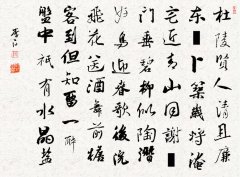 杜陵賢人清且廉
東卜築歲將淹
宅近青山同謝
門垂碧柳似陶潛
好鳥迎春歌後院
飛花送酒舞前檐
客到但知留一醉
盤中祇有水晶鹽